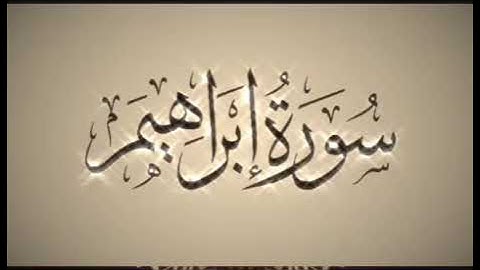 سُورَةُ إِبْرَاهِيم